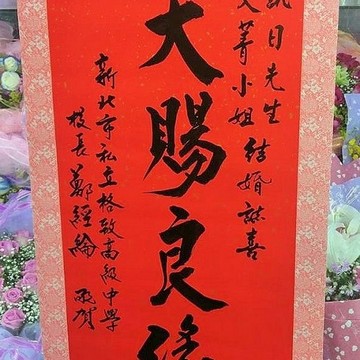 日先生
菁小姐結婚誌喜
天賜良緣
新北市私立格致高級中學
校長鄭經綸敬賀